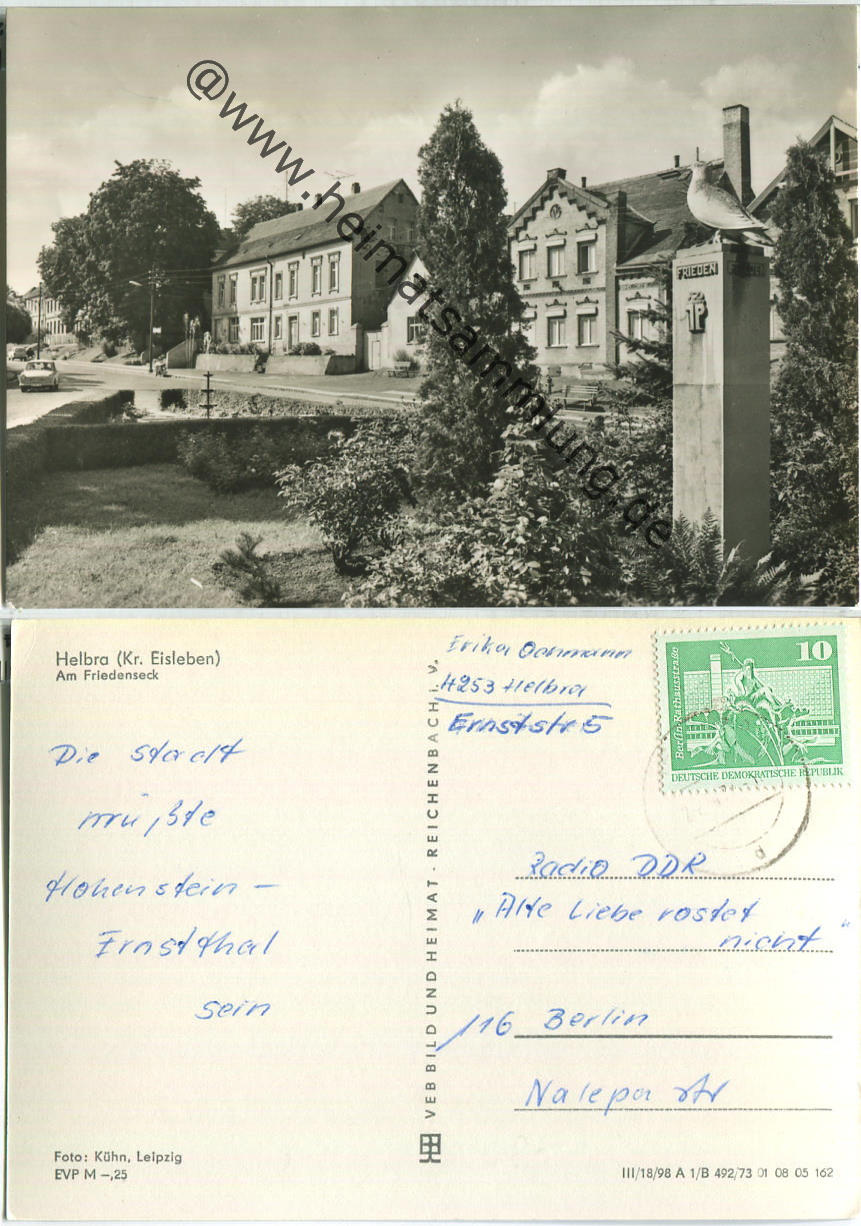 @www.heimatsammlung.de
FRIEDEN
Helbra (Kr. Eisleben)
Am Friedenseck
Die stadt
müßte
Hohenstein-
Ernstthal
sein
Foto: Kühn, Leipzig
EVP M –,25
VEB BILD UND HEIMAT · REICHENBACH i. V.
Erika
4253 Helbra
Ernststr 5
10
Berlin-Rathausstraße
DEUTSCHE DEMOKRATISCHE REPUBLIK
Radio DDR
„Alte Liebe rostet
nicht"
116 Berlin
Nalepa str
III/18/98 A 1/B 492/73 01 08 05 162